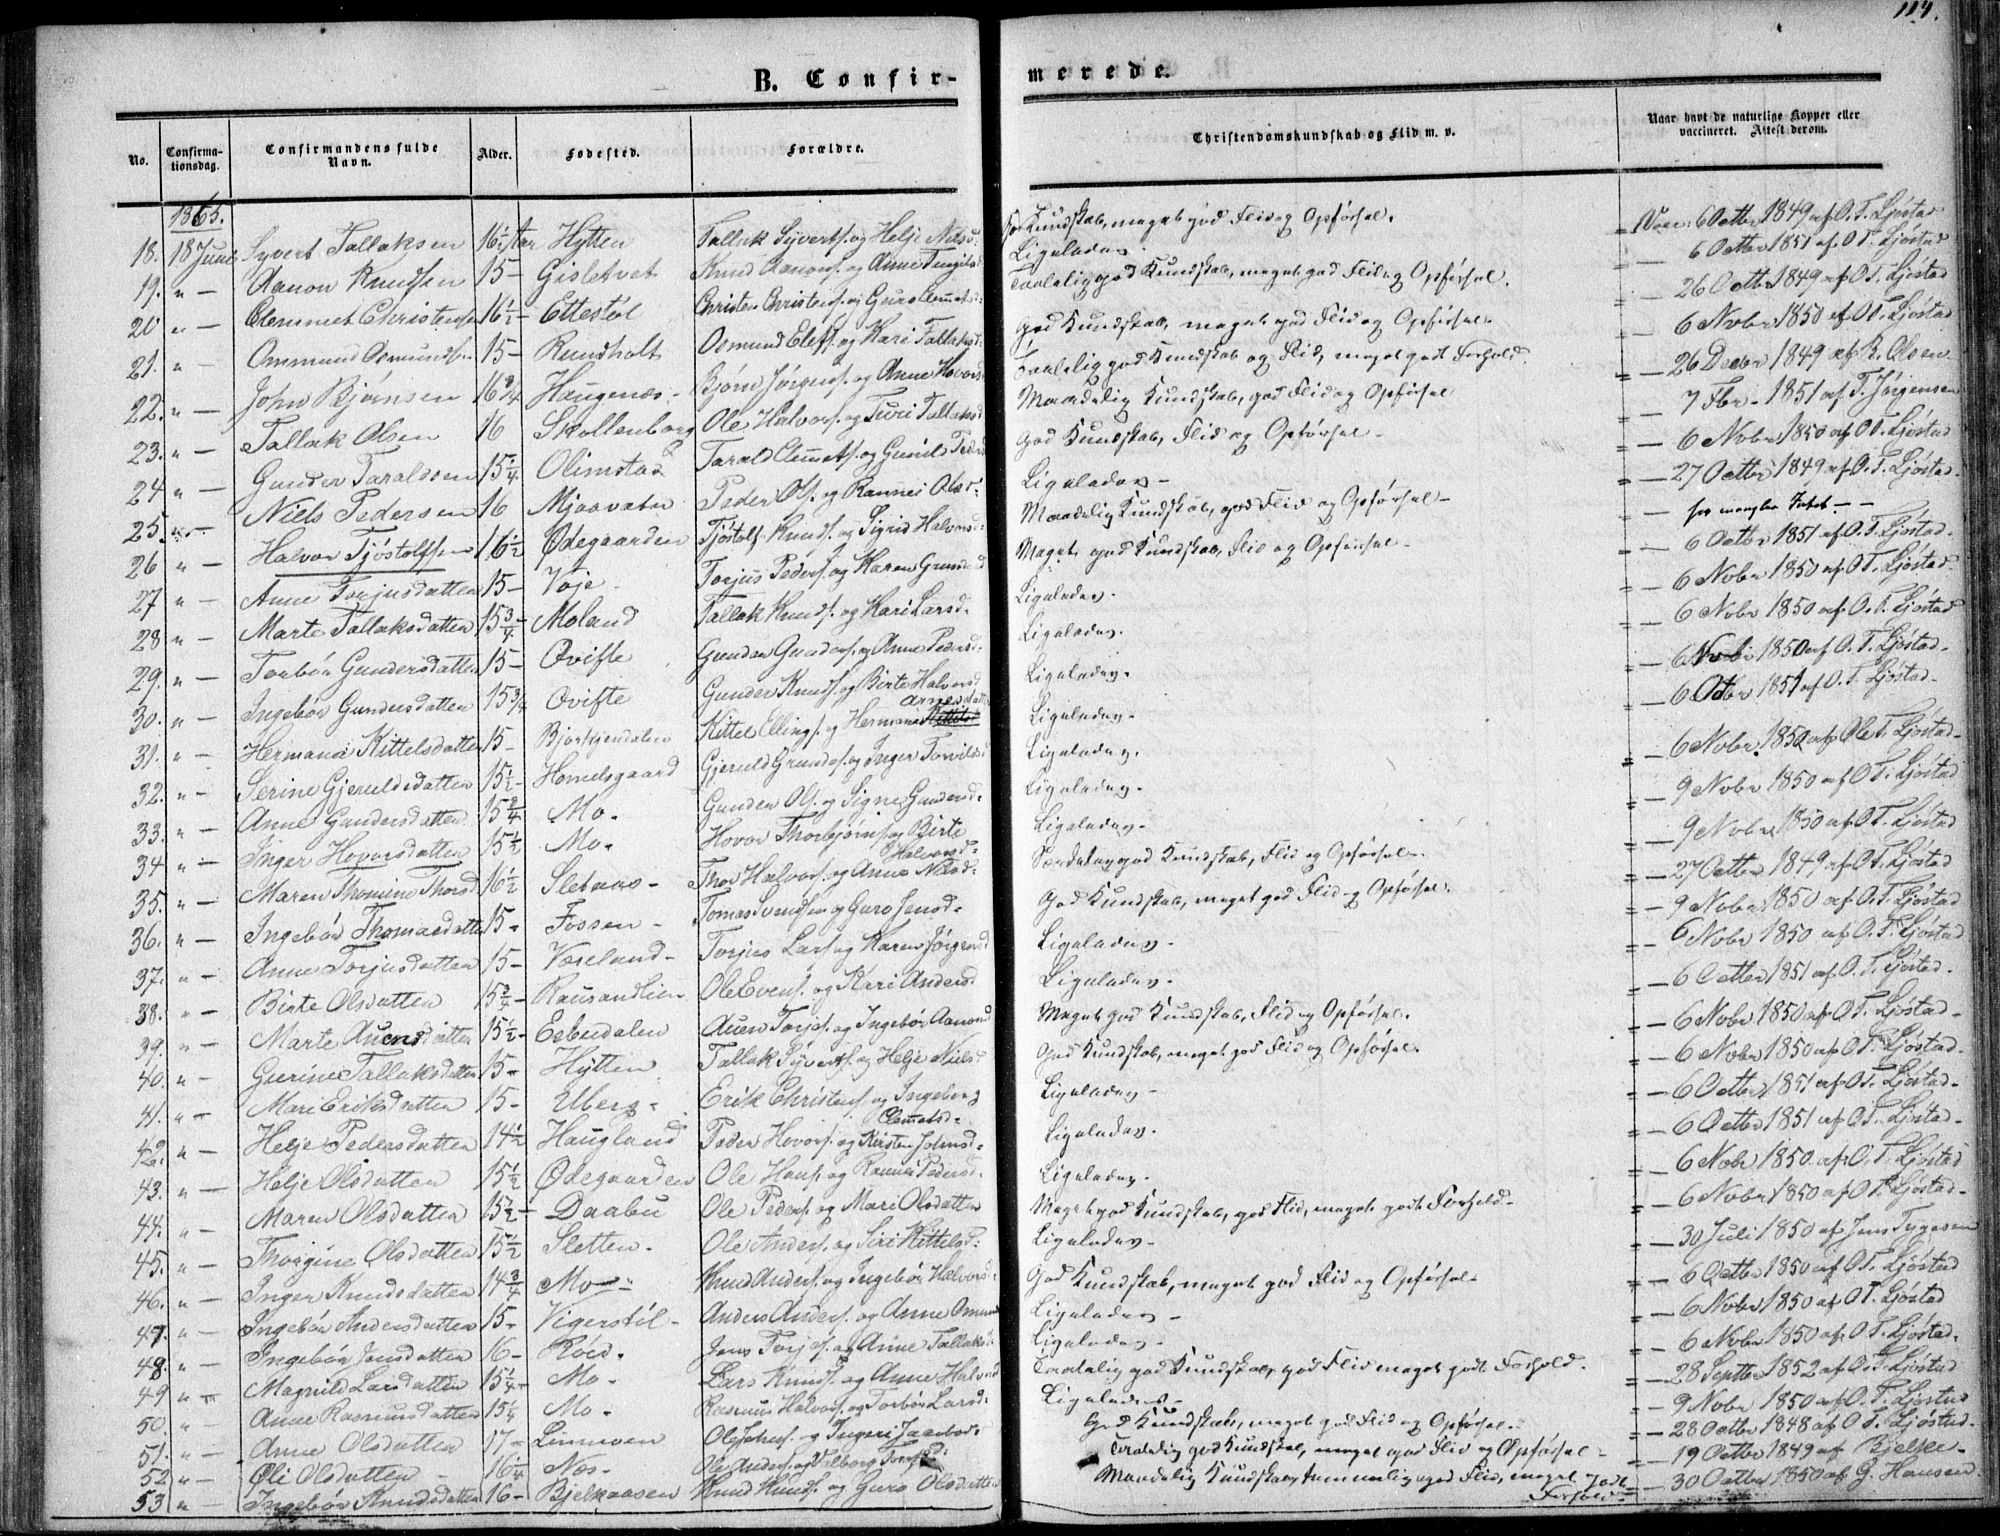 114.
B. Confir- merede.
No. Confirma- tionsdag. Confirmandens fulde Navn. Alder. Fødested. Forældre. Christendomskundskab og Flid m. v. Naar havt de naturlige Kopper eller vaccineret. Attest derom.
1865.
18. 18 Juni Syvert Tallaksen 16 1/4 Aar Hytten Tallak Syverts. og Helje Nilsd: meget god Flid og Opførsel. 6 Octbr 1849 af O. T. Ljøstad
19. " — Aanon Knudsen 15 — Gisletvet Knud Aanons. og Anne Tengilsd Ligeledes. — 6 Octbr 1851 af O T. Ljøstad
20 " — Clemmet Christensen 16 1/2 — Ettestøl Christen Christens. og Guro Clemmetsd: Taalelig god Kundskab, meget god Flid og Opførsel. — 26 Octbr 1849 af O. T. Ljøstad
21. " — Ommund Osmundsen 15 — Rundholt Osmund Elefs. og Kari Tallaksd: God Kundskab, meget god Flid og Opførsel. — 6 Novbr 1850 af O T. Ljøstad
22. " — John Bjørnsen 16 3/4 Haugenæs - Bjørn Jørgens. og Anne Hovors Taalelig god Kundskab og Flid, meget godt Forhold. — 26 Decbr 1849 af R. Olsen
23. " — Tallak Olsen 16 Skollenborg Ole Halvors. og Turi Tallaksd Maadelig Kundskab, god Flid og Opførsel — 7 Fbr - 1851 af T. Jørgensen
24 " — Gunder Taraldsen 15 1/4 Olimstad Tarald Clemmets. og Gunild Pedersd God Kundskab, Flid og Opførsel - — 6 Novbr 1850 af O T. Ljøstad
25. " — Niels Pedersen 16 Mjaavatn Peder Ols. og Rannei Olsd: Ligeledes - — 27 Octbr 1849 af O. T. Ljøstad
26 " — Halvor Tjøstolfsen 16 1/2 Ødegaarden Tjøstolf Knuds. og Sigrid Halvorsd: Maadelig Kundskab, god Flid og Opførsel - — her mangler Intet - -
27 " — Anne Torjusdatter 15 — Voje - Torjus Peders. og Karen Gundersd Meget god Kundskab, Flid og Opførsel - — 6 Octbr 1851 af O. T. Ljøstad.
28 " — Marte Tallaksdatter 15 3/4 — Moland Tallak Knuds. og Kari Larsd: Ligeledes. — 6 Novbr 1850 af O T. Ljøstad.
29. " — Torbør Gundersdatter 15 — Ovifte Gunder Gunders. og Anne Pedersd. Ligeledes. — 6 Novbr 1850 af O. T. Ljøstad
30. " — Ingebør Gundersdatter 15 3/4 Ovifte Gunder Knuds. og Birte Halvorsd Ligeledes. — 6 Novbr 1850 af O. T. Ljøstad -
31. " — Hermana Kittelsdatter 15 - Bjorkjendalen Kittel Ellings. og Hermana Arnesdatter Ligeledes - — 6 Octbr 1851 af O. T. Ljøstad -
32. " — Serine Gjeruldsdatter 15 1/2 - Homelsgaard Gjeruld Gunders. og Inger Torvilsd Ligeledes. — 6 Novbr 1850 af Ole T. Ljøstad -
33. " — Anne Gundersdatter 15 3/4 Mo - Gunder Ols. og Signe Gundersd. Ligeledes. — 9 Novbr 1850 af O T. Ljøstad
34 " — Inger Hovorsdatter 15 1/2 Mo - Hovor Thorbjørns. og Birte Halvorsd - Ligeledes - — 9 Novbr 1850 af O T. Ljøstad
35. " — Maren Thomine Thorsd 16 1/2 Sletaas - Thor Halvors. og Anne Nilsd - Særdeles god Kundskab, Flid og Opførsel - — 27 Octbr 1849 af O T. Ljøstad
36. " — Ingebør Thomasdatter 15 - Fossen - Tomas Svendsen og Guro Jensd - God Kundskab, meget god Flid og Opførsel. — 9 Novbr 1850 af O. T. Ljøstad
37. " — Anne Torjusdatter 15 - Væreland - Torjus Lars. og Karen Jørgensd Ligeledes - — 6 Novbr 1850 af O. T. Ljøstad
38. " — Birte Olsdatter 15 3/4 - Rausandlien Ole Evens. og Kari Andersd Ligeledes. — 6 Octbr 1851 af O. T. Ljøstad -
39. " — Marte Auensdatter 15 1/2 - Esbudalen Auen Torjs. og Ingebør Aanonsd Meget god Kundskab, Flid og Opførsel. — 6 Novbr 1850 af O T. Ljøstad -
40. " — Gurine Tallaksdatter 15 - Hytten Tallak Syverts. og Helje Nielsd God Kundskab, meget god Flid og Opførsel. — 6 Novbr 1850 af O T. Ljøstad -
41. " — Mari Eriksdatter 15 - Elberg - Erik Christens. og Ingeborg Clemetsd - Ligeledes - — 6 Octbr 1851 af O T. Ljøstad -
42. " — Helje Pedersdatter 14 1/2 Haugland Peder Hovors. og Kirsten Johnsd - Ligeledes. — 6 Octbr 1851 af O. T. Ljøstad
43. " — Helje Olsdatter 15 1/2 Ødegaarden Ole Hans. og Rannei Pedersd - Ligeledes. — 6 Novbr 1850 af O. T. Ljøstad
44. " — Maren Olsdatter 15 1/2 - Daabu Ole Peders. og Mari Olsdatter Meget god Kundskab, god Flid, meget godt Forhold - — 6 Novbr 1850 af O T. Ljøstad -
45. " — Thorgine Olsdatter 15 1/2 Sletten - Ole Anders. og Siri Kittelsd: Ligeledes - — 30 Juli 1850 af Jens Tygesen
46. " — Inger Knudsdatter 14 3/4 Mo - Knud Anders. og Ingebør Halvorsd - God Kundskab, meget god Flid og Opførsel - — 6 Octbr 1850 af O T. Ljøstad
47 " — Ingebør Andersdatter 15 - Vigerstøl - Anders Anders. og Anne Omunds Ligeledes - — 6 Novbr 1850 af O T. Ljøstad
48. " — Ingebør Jensdatter 16 - Røed - Jens Torjs. og Anne Tallaks: Ligeledes - — 6 Novbr 1850 af O T. Ljøstad.
49 " — Magnild Larsdatter 15 1/4 - Mo - Lars Knuds. og Anne Halvorsd Taalelig god Kundskab, god Flid meget godt Forhold. — 28 Septbr 1852 af O T. Ljøstad
50. " — Anne Rasmusdatter 15 1/4 Mo - Rasmus Halvors. og Torbør Larsd - Ligeledes - — 9 Novbr 1850 af O. T. Ljøstad
51. " — Anne Olsdatter 17 - Linnveen Ole Johns. og Ingeri Jacobsd: God Kundskab, meget god Flid og Opførsel - — 28 Octbr 1848 af O T. Ljøstad -
52 " — Oli Olsdatter - 16 1/4 Næs - Ole Anders. og Vilborg Taalelig god Kundskab, meget god Flid og Opførsel - — 19 Octbr 1849 af Bjelke -
53 " — Ingebør Knudsdatter 16 - Bjelkaasen Knud Knuds. og Guro Olsdatter Maadelig Kundskab, temmelig god Flid, meget godt Forhold - — 30 Octbr 1850 af G. Hansen.